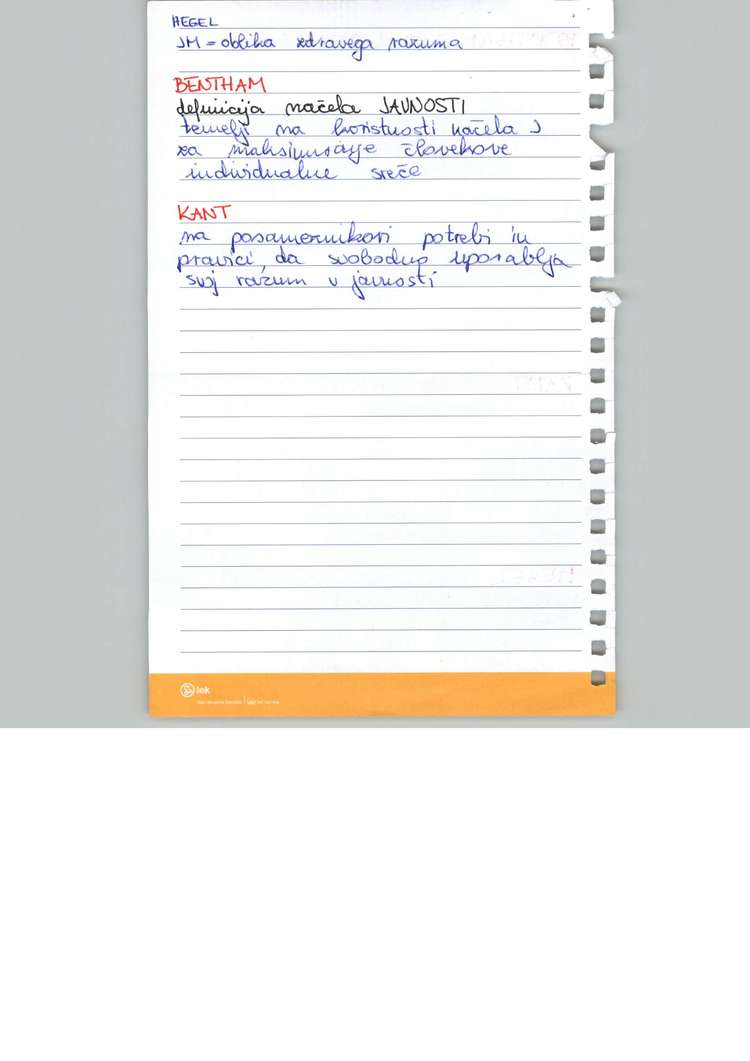 HEGEL
JM = oblika zdravega razuma
BENTHAM
definicija načela JAVNOSTI
temelji na koristnosti načela J
za maksimiranje človekove
individualne sreče
KANT
na posameznikovi potrebi in
pravici, da svobodno uporablja
svoj razum v javnosti
lek